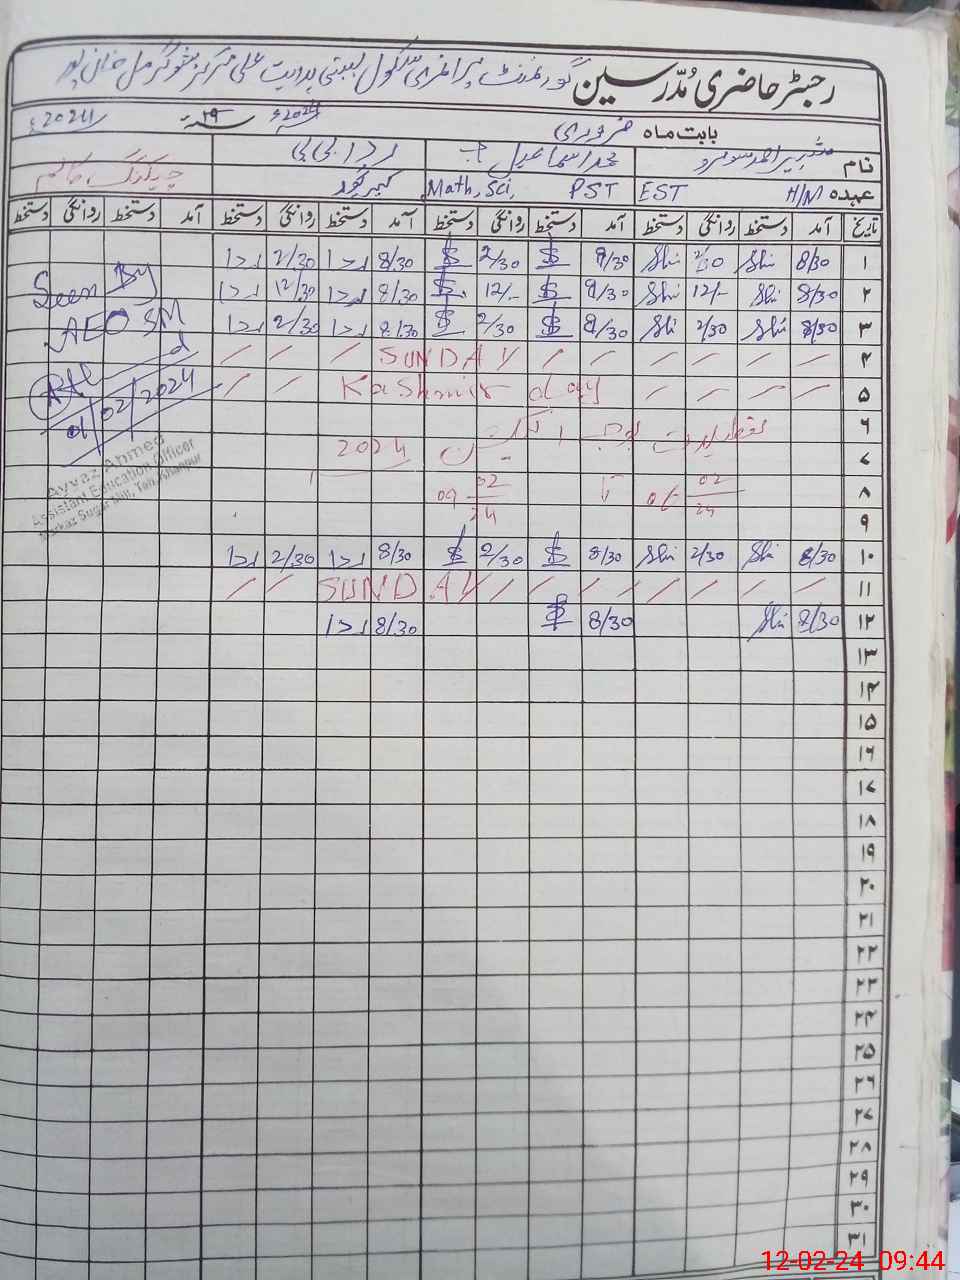 رجسٹر حاضری مُدّرسین گورنمنٹ پرائمری سکول بستی ہدایت علی مرکز شوگر مل خان پور
بابت ماہ فروری 2024ء سنہ ۱۹ 2024ء
نام شبیر احمد سومرو محمد اسماعیل ردا بی بی چیکنگ کالم
عہدہ H/M EST PST Math, Sci, کیئر گیور
تاریخ آمد دستخط روانگی دستخط آمد دستخط روانگی دستخط آمد دستخط روانگی دستخط آمد دستخط روانگی دستخط
۱ 8/30 2/30 8/30 2/30 8/30 2/30
۲ 8/30 12/- 8/30 12/- 8/30 12/30
۳ 8/30 2/30 8/30 2/30 8/30 2/30
Seen By
AEO SM
01/02/2024
Ayyaz Ahmed
Assistant Education Officer
Markaz Sugar Mill, Teh. Khanpur
۴ SUNDAY
۵ Kashmir day
۶ تعطیلات الیکشن
۷ 2024
۸ 06 02/24 تا 09 02/24
۹
۱۰ 8/30 2/30 8/30 2/30 8/30 2/30
۱۱ SUNDAY
۱۲ 8/30 8/30 8/30
۱۳
۱۴
۱۵
۱۶
۱۷
۱۸
۱۹
۲۰
۲۱
۲۲
۲۳
۲۴
۲۵
۲۶
۲۷
۲۸
۲۹
۳۰
۳۱
12-02-24 09:44